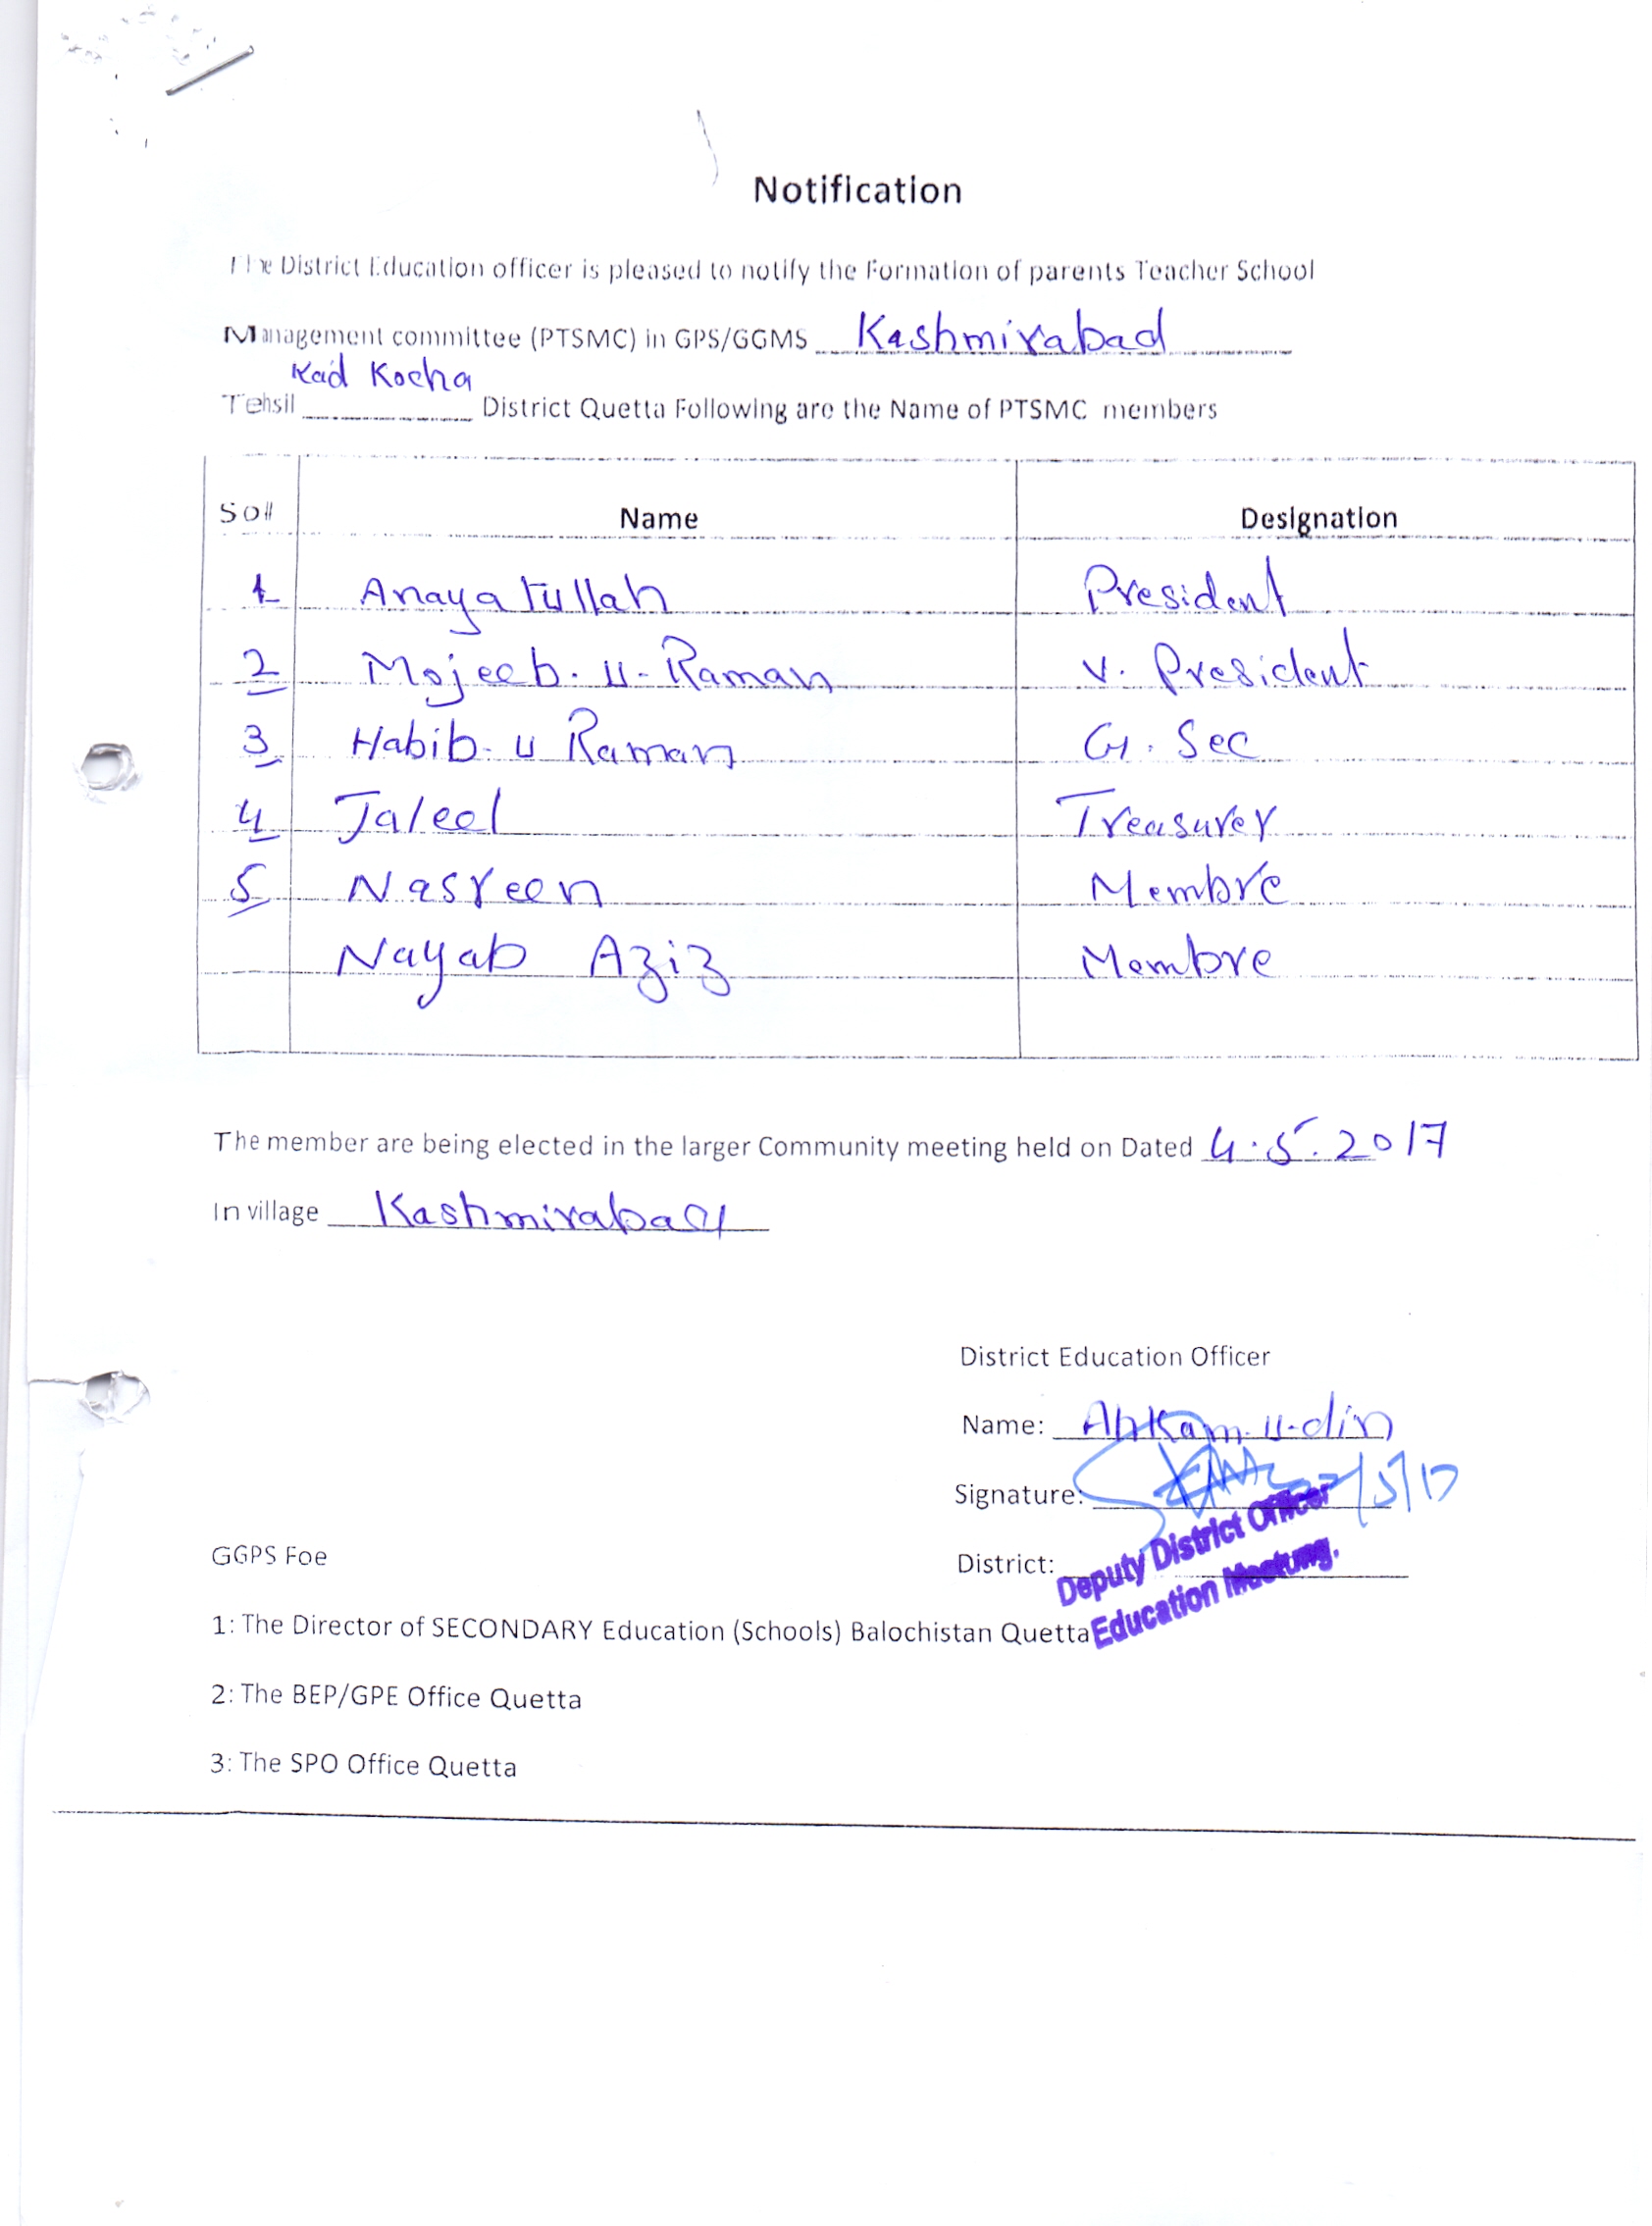 Notification
The District Education officer is pleased to notify the Formation of parents Teacher School
Management committee (PTSMC) in GPS/GGMS Kashmirabad
Kad Kocha
Tehsil District Quetta Following are the Name of PTSMC members
So# Name Designation
1 Anayatullah President
2 Mojeeb. u-Raman V. President
3 Habib. u Raman G. Sec
4 Jaleel Treasurer
5 Nasreen Membre
Nayab Aziz Membre
The member are being elected in the larger Community meeting held on Dated 4.5.2017
In village Kashmirabad
District Education Officer
Name: Ahkam.u-din
Signature: /5/17
District:
Deputy District Officer
Education
GGPS Foe
1: The Director of SECONDARY Education (Schools) Balochistan Quetta
2: The BEP/GPE Office Quetta
3: The SPO Office Quetta